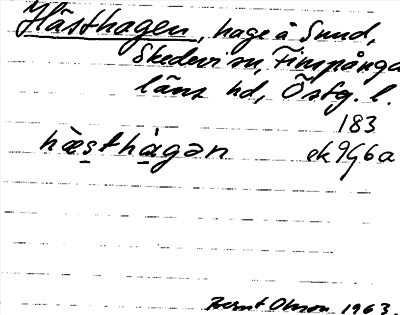 Hästhagen, hage å Sund,
Skedevi sn, Finspånga
läns hd, Östg. l.
183
hæ̀sthàgən ek 9G6a
Bernt Olsson 1963.